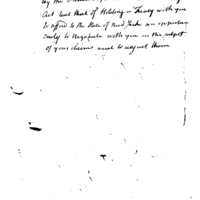 by the
Act but that of Holding a Treaty with you
to afford to the State of New York an opportu
nity to negotiate with you on the subject
of your claims and to adjust them